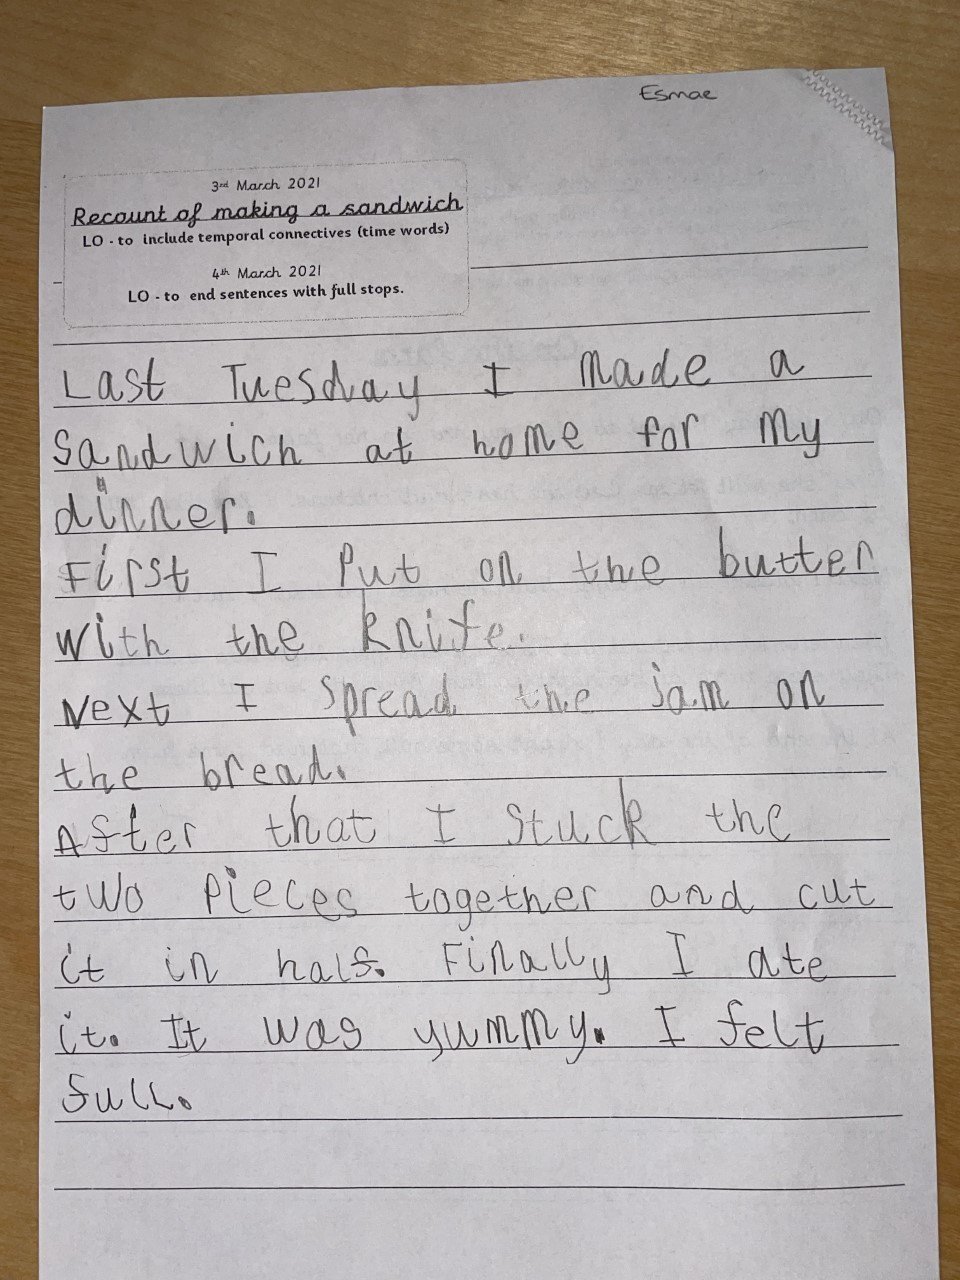 Esmae
3rd March 2021
Recount of making a sandwich
LO - to include temporal connectives (time words)
4th March 2021
LO - to end sentences with full stops.
Last Tuesday I made a
sandwich at home for my
dinner.
First I put on the butter
with the knife.
Next I spread the jam on
the bread.
After that I stuck the
two pieces together and cut
it in half. Finally I ate
it. It was yummy. I felt
full.